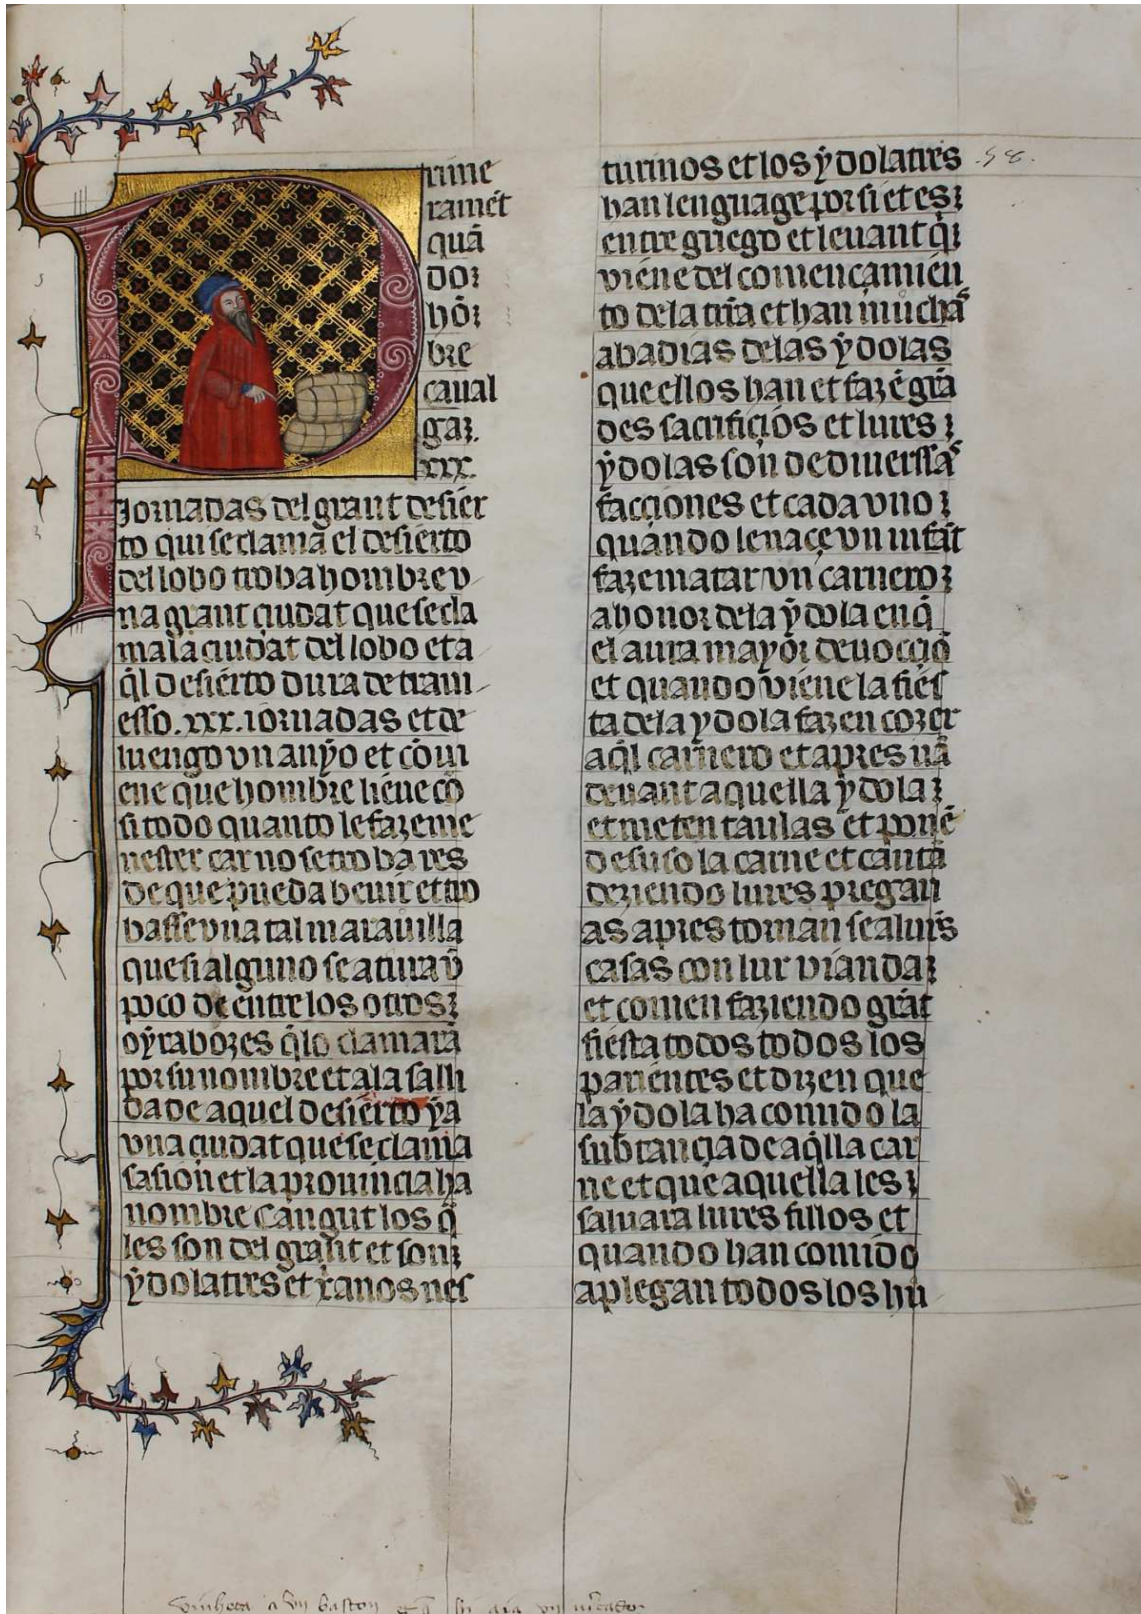 Prime
ramēt
quā
dor
hōr
bre
caual
gaz.
xxx.
jornadas del grant desier
to qui se clama el desierto
del lobo troba hombre v
na grant ciudat que se cla
ma la ciudat del lobo et a
q̄l desierto dura de traui
esso .xxx. iornadas et de
luengo vn anẏo et cōui
ene que hombre lieue cō
si todo quanto le faze me
nester car no se troba res
de que pueda beuir et tro
basse vna tal marauilla
que si alguno se atura ṽ
poco de entre los otros
oẏra bozes q̄ lo clamarā
por su nombre et a la salli
da de aquel desierto ẏ a
vna ciudat que se clama
sasion et la prouincia ha
nombre Cangut los q̄
les son del grant et son
ẏdolatres et x̄anos nes
turinos et los ẏdolatres
han lenguage por si et es
entre griego et leuant q̄
viene del comencamien
to de la trā et han muchas
abadias de las ẏdolas
que ellos han et fazē grā
des sacrificios et lures
ẏdolas son de diuerssas
facciones et cada vno
quando le naçe vn infāt
faze matar vn carnero
a honor de la ẏdola en q̄
el aura mayor deuocciō
et quando viene la fies
ta de la ydola fazen cozer
aq̄l carnero et apres uā
deuant aquella ẏdola
et meten taulas et ponē
desuso la carne et cantā
deziendo lures pregari
as apres tornan se a lurs
casas con lur vianda
et comen faziendo grāt
fiesta todos todos los
parientes et dizen que
la ẏdola ha comido la
substancia de aq̄lla car
ne et que aquella les
saluara lures fillos et
quando han comido
aplegan todos los hu
58.
vinheta a vn baston